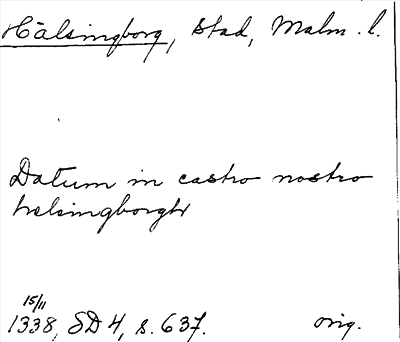 Hälsingborg, Stad, Malm. l.
Datum in castro nostro
helsingborgh
15/11
1338, SD 4, s. 637. orig.